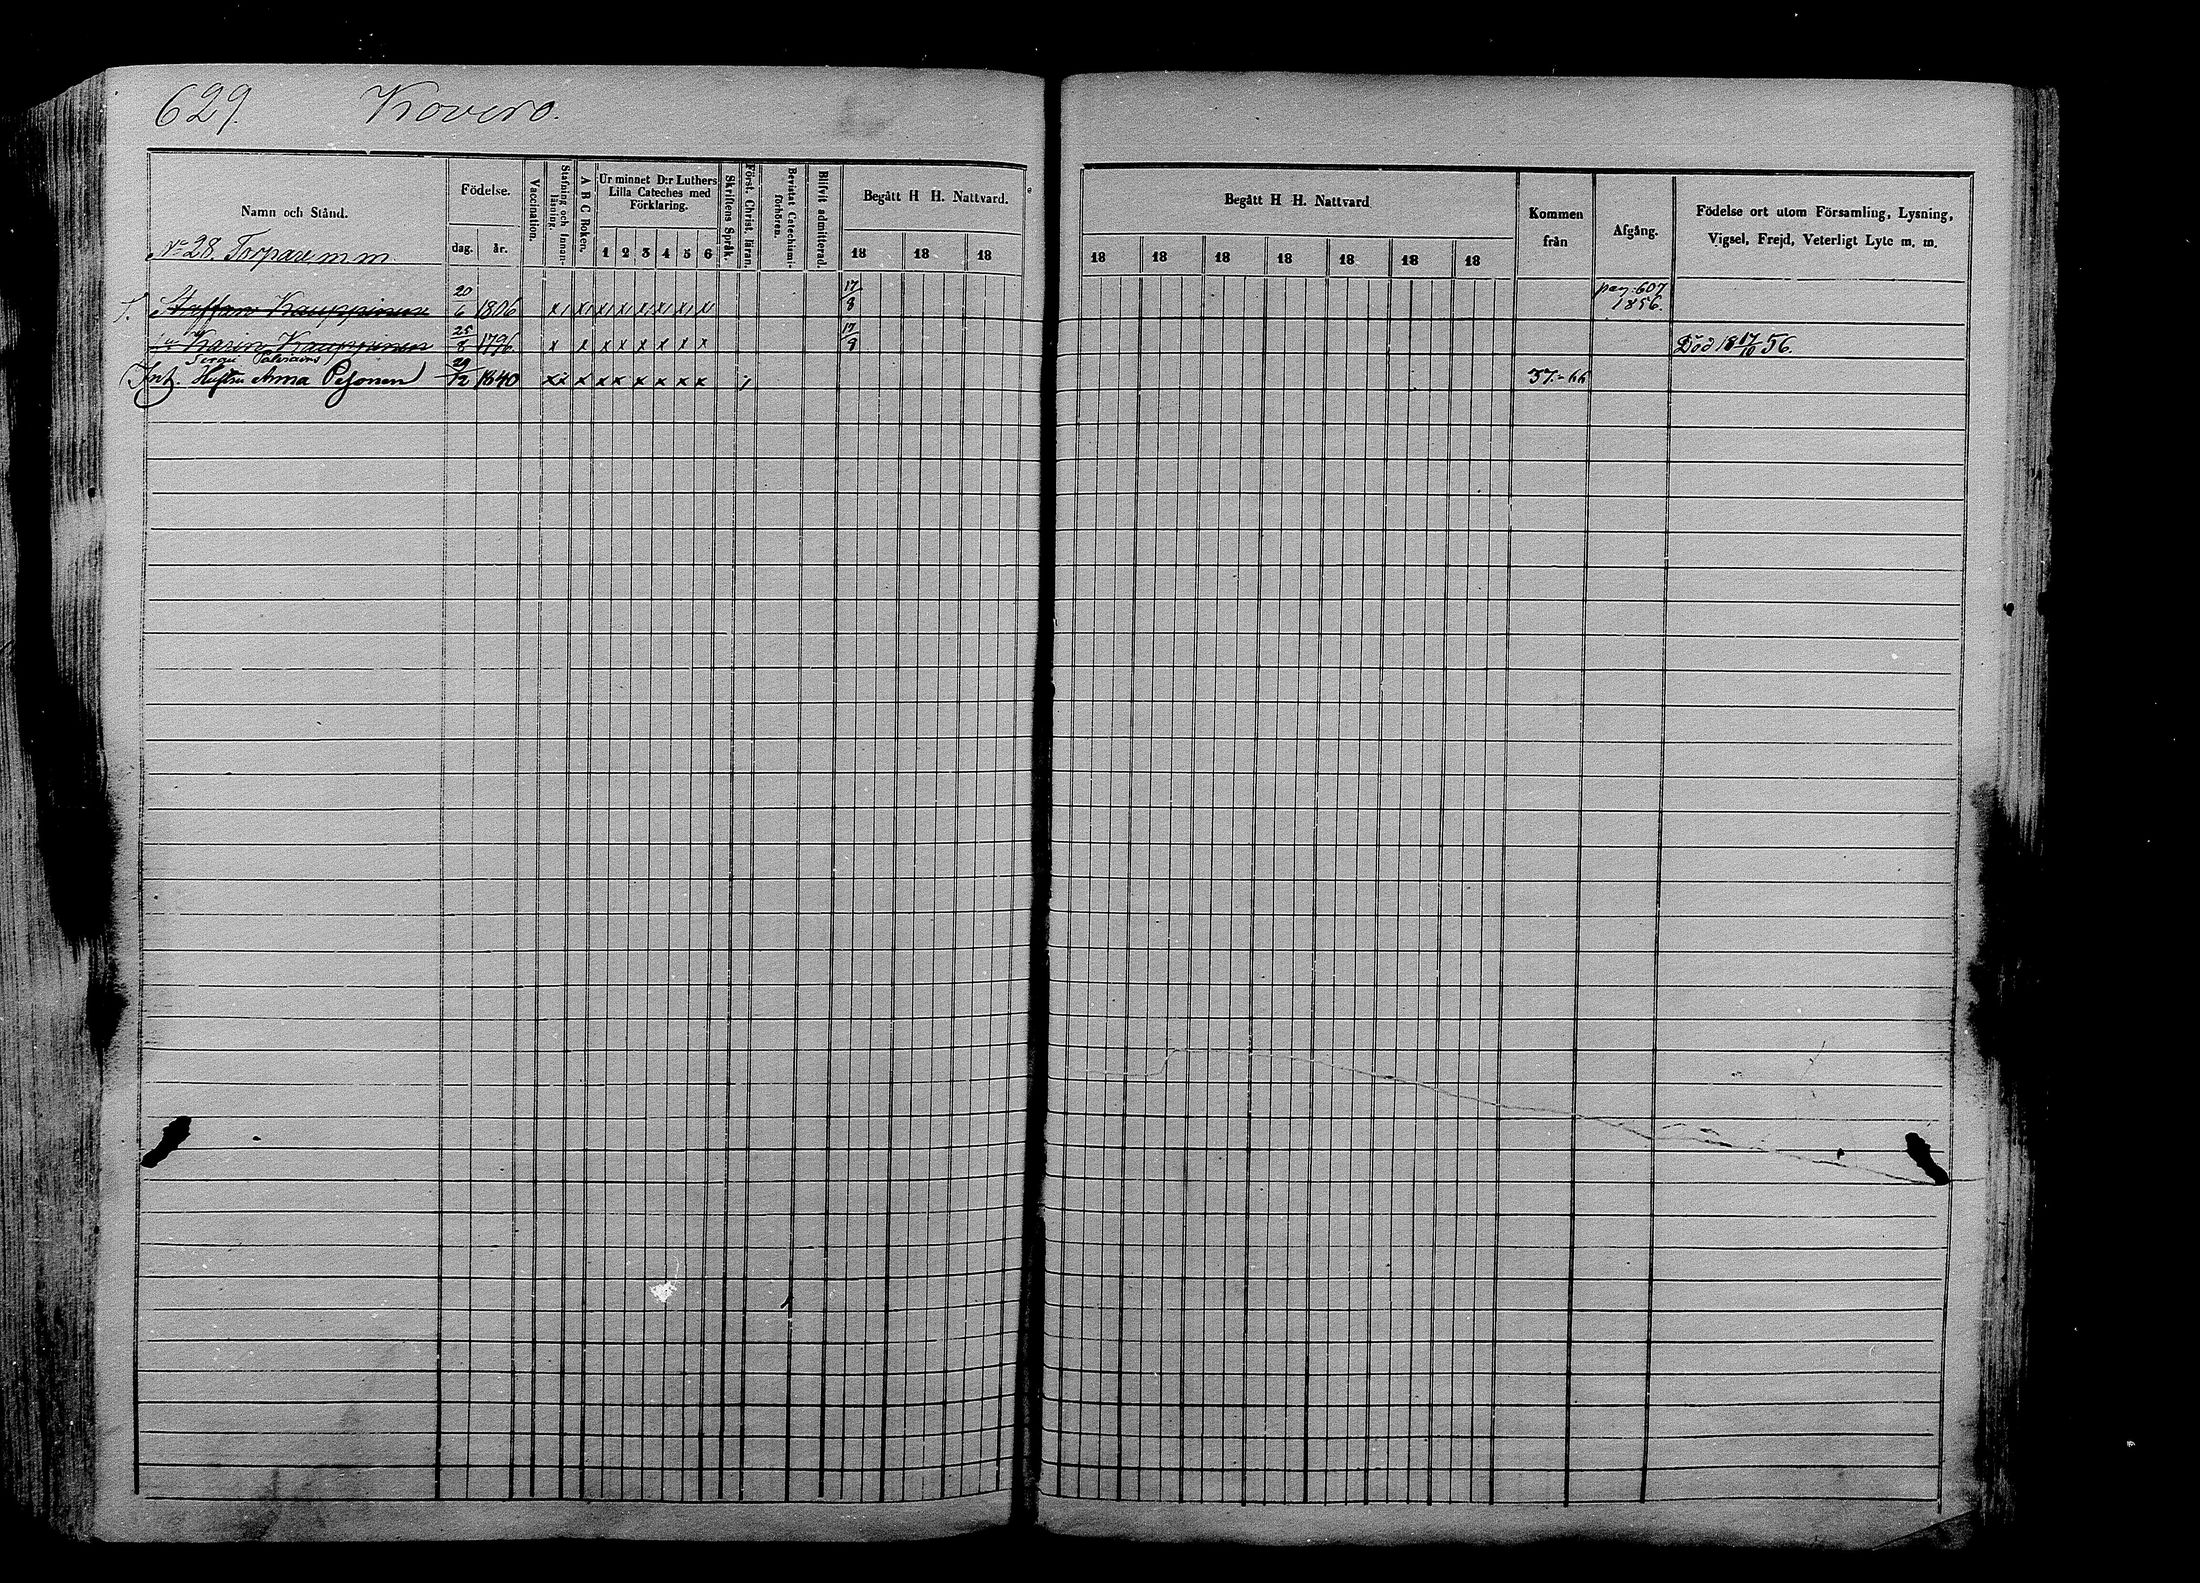 629. Kovero.
Namn och Stånd.
Födelse.
dag. år.
Vaccination.
Stafning och Innanläsning.
A B C Boken.
Ur minnet D:r Luthers
Lilla Cateches med
Förklaring.
1 2 3 4 5 6
Skriftens Språk.
Först. Christ. läran.
Bevistat Catechismi-förhören.
Blifvit admitterad.
Begått H H. Nattvard.
18 18 18
Begått H H. Nattvard
18 18 18 18 18 18 18
Kommen
från
Afgång.
Födelse ort utom Församling, Lysning,
Vigsel, Frejd, Veterligt Lyte m. m.
No 28. Torpare m m
T. Staffan Kauppinen 20/6 1806 x x x x x x x x 17/8 pag. 607 1856.
Karin Kauppinen 25/8 1796 x x x x x x x x 17/8 Död 18 17/10 56.
Inh. Hustru Anna Pesonen 29/12 1840 xx x x x x x x x 37.-66